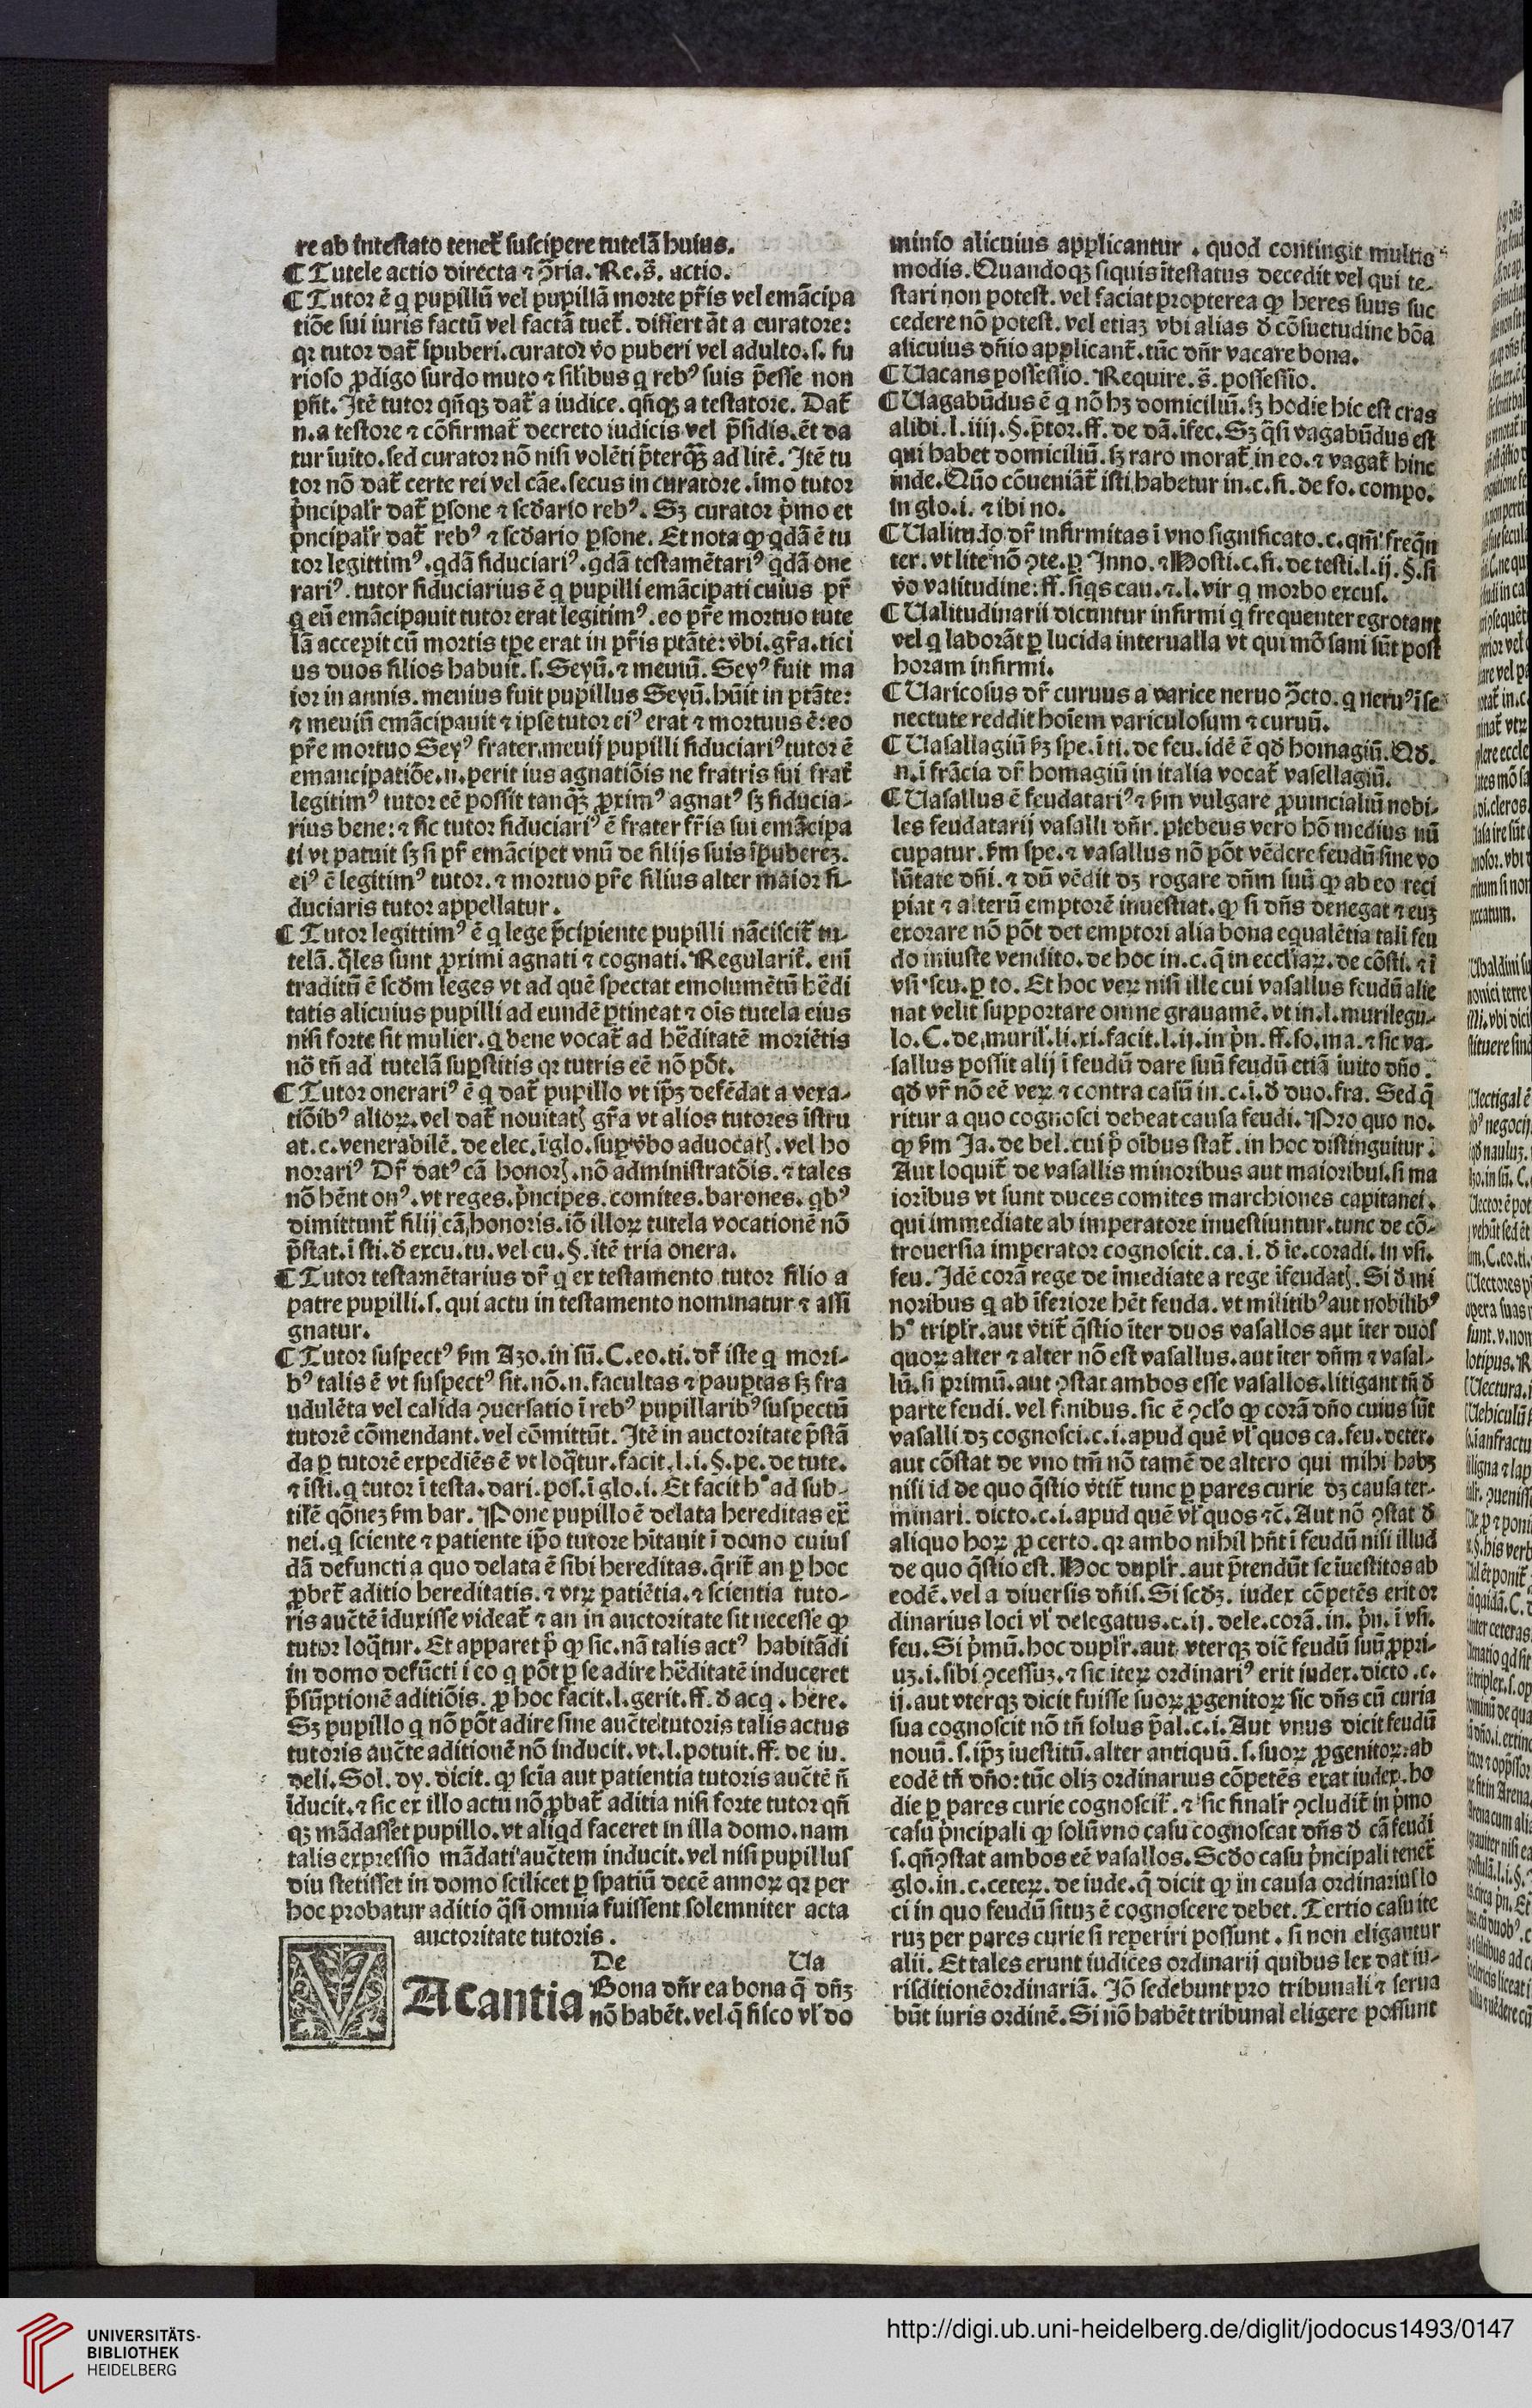 re ab intestato tenet᷑ suscipere tutelã huius.
¶ Tutele actio directa ⁊ ꝯ̃ria. Re.s̃. actio.
¶ Tutor ẽ q pupillũ vel pupillã morte pr̃is vel emãcipa
tiõe sui iuris factũ vel factã tuet᷑. differt ãt a curatore:
qꝛ tutor dat᷑ ĩpuberi.curator ṽo puberi vel adulto.s. fu
rioso ꝓdigo surdo muto ⁊ silibus q rebꝰ suis p̃esse non
pñt. Itẽ tutor qñqꝫ dat᷑ a iudice. qñqꝫ a testatore. Dat᷑
n.a testore ⁊ cõfirmat᷑ decreto iudicis vel p̃sidis.ẽt da
tur ĩuito.sed curator nõ nisi volẽti p̃terqꝫ̃ ad litẽ. Itẽ tu
tor nõ dat᷑ certe rei vel cãe.secus in curatore.imo tutor
p̃ncipalr̃ dat᷑ ꝑsone ⁊ scðario rebꝰ. Sꝫ curator p̃mo et
p̃ncipalr̃ dat᷑ rebꝰ ⁊ scðario ꝑsone. Et nota ꝙ qdã ẽ tu
tor legittimꝰ.qdã fiduciariꝰ.qdã testamẽtariꝰ qdã one
rariꝰ. tutor fiduciarius ẽ q pupilli emãcipati cuius pr̃
q eũ emãcipauit tutor erat legitimꝰ.eo pr̃e mortuo tute
lã accepit cũ mortis tꝑe erat in pr̃is ptãte: ṽbi.gr̃a.tici
us duos filios habuit.s.Seyũ.⁊ meuiũ. Seyꝰ fuit ma
ior in annis.menius fuit pupillus Seyũ.hũit in ptãte:
⁊ meuiũ emãcipauit ⁊ ipse tutor eiꝰ erat ⁊ mortuus ẽ:eo
pr̃e mortuo Seyꝰ frater.meuij pupilli fiduciariꝰ tutor ẽ
emancipatiõe.n.perit ius agnatiõis ne fratris sui frat᷑
legitimꝰ tutor eẽ possit tanqꝫ̃ ꝓximꝰ agnatꝰ sꝫ fiducia-
rius bene: ⁊ sic tutor fiduciariꝰ ẽ frater fr̃is sui emãcipa
ti vt patuit sꝫ si pr̃ emãcipet vnũ de filijs suis ĩpubereꝫ.
eiꝰ ẽ legitimꝰ tutor.⁊ mortuo pr̃e filius alter maior fi-
duciaris tutor appellatur.
¶ Tutor legittimꝰ ẽ q lege p̃cipiente pupilli nãciscit᷑ tu-
telã.q̃les sunt ꝓximi agnati ⁊ cognati. Regularit᷑. eni
traditũ ẽ scðm leges vt ad quẽ spectat emolumẽtũ hẽdi
tatis alicuius pupilli ad eundẽ ꝑtineat ⁊ oĩs tutela eius
nisi forte sit mulier.q bene vocat᷑ ad hẽditatẽ moriẽtis
nõ tñ ad tutelã suꝑstitis qꝛ tutris eẽ nõ põt.
¶ Tutor onerariꝰ ẽ q dat᷑ pupillo vt ip̃ꝫ defẽdat a vexa-
tiõibꝰ alioꝝ.vel dat᷑ nouitatꝭ gr̃a vt alios tutores ĩstru
at.c.venerabilẽ.de elec.ĩ glo.suꝑ ṽbo aduocatꝭ.vel ho
norariꝰ Dr̃ datꝰ cã honorꝭ.nõ administratõis.⁊ tales
nõ hẽnt onꝰ.vt reges.p̃ncipes.comites.barones.qbꝰ
dimittunt᷑ filij cã honoris.iõ illoꝝ tutela vocationẽ nõ
p̃stat.ĩ sti.ð excu.tu.vel cu.§.itẽ tria onera.
¶ Tutor testamẽtarius dr̃ q ex testamento tutor filio a
patre pupilli.s.qui actu in testamento nominatur ⁊ assi
gnatur.
¶ Tutor suspectꝰ ẜm Azo.in sũ.C.eo.ti.dr̃ iste q mori-
bꝰ talis ẽ vt suspectꝰ sit.nõ.n.facultas ⁊ pauꝑtas sꝫ fra
udulẽta vel calida ꝯuersatio ĩ rebꝰ pupillaribꝰ suspectũ
tutorẽ cõmendant.vel cõmittũt. Itẽ in auctoritate p̃stã
da ꝑ tutorẽ expediẽs ẽ vt loq̃tur.facit.l.i.§.pe.de tute.
⁊ ĩsti.q tutor ĩ testa.dari.pos.ĩ glo.i. Et facit h° ad sub-
tilẽ qõneꝫ ẜm bar. Pone pupillo ẽ delata hereditas ex̃
nei.q sciente ⁊ patiente ip̃o tutore hĩtauit ĩ domo cuius
dã defuncti a quo delata ẽ sibi hereditas.q̃rit᷑ an ꝑ hoc
ꝓbet᷑ aditio hereditatis.⁊ vtꝝ patiẽtia.⁊ scientia tuto-
ris auc̃tẽ ĩduxisse videat᷑ ⁊ an in auctoritate sit necesse ꝙ
tutor loq̃tur. Et apparet p̃ ꝙ sic.nã talis actꝰ habitãdi
in domo defũcti ĩ eo q põt ꝑ se adire hẽditatẽ induceret
p̃sũptionẽ aditiõis. ꝓ hoc facit.l.gerit.ff.ð acq.here.
Sꝫ pupillo q nõ põt adire sine auc̃te tutoris talis actus
tutoris auc̃te aditionẽ nõ inducit.vt.l.potuit.ff.de iu.
deli. Sol.dy.dicit.ꝙ scĩa aut patientia tutoris auc̃tẽ ñ
ĩducit.⁊ sic ex illo actu nõ ꝓbat᷑ aditia nisi forte tutor qñ
qꝫ mãdasset pupillo.vt aliqd faceret in illa domo.nam
talis expressio mãdati auc̃tem inducit.vel nisi pupillus
diu stetisset in domo scilicet ꝑ spatiũ decẽ annoꝝ qꝛ per
hoc probatur aditio q̃si omnia fuissent solemniter acta
auctoritate tutoris.
De Ua
VAcantia Bona dñr ea bona q̃ dñꝫ
nõ habẽt.vel q̃ fisco vl' do
minio alicuius applicantur. quod contingit multis
modis. Quandoqꝫ siquis ĩtestatus decedit vel qui te-
stari non potest.vel faciat propterea ꝙ heres suus suc
cedere nõ potest. vel etiaꝫ vbi alias ð cõsuetudine bõa
alicuius dñio applicant᷑.tũc dñr vacare bona.
¶ Uacans possessio. Require.s̃.possessio.
¶ Uagabũdus ẽ q nõ hꝫ domiciliũ.sꝫ hodie hic est cras
alibi.l.iiij.§.p̃tor.ff.de dã.ĩfec. Sꝫ q̃si vagabũdus est
qui habet domiciliũ.sꝫ raro morat᷑ in eo.⁊ vagat᷑ hinc
inde. Qũo cõueniãt᷑ isti habetur in.c.fi.de fo.compo.
in glo.i.⁊ ibi no.
¶ Ualitudo dr̃ infirmitas ĩ vno significato.c.qm̃ freq̃n
ter.vt lite nõ ꝯte.ꝑ Inno.⁊ Hosti.c.fi.de testi.l.ij.§.si
ṽo valitudine:ff.siqs cau.⁊.l.vir q morbo excus.
¶ Ualitudinarii dicuntur infirmi q frequenter egrotant
vel q laborãt ꝑ lucida interualla vt qui mõ sani sũt post
horam infirmi.
¶ Uaricosus dr̃ curuus a varice neruo ꝯ̃cto.q neruꝰ ĩ se
nectute reddit hoĩem variculosum ⁊ curuũ.
¶ Uasallagiũ ẜꝫ spe.ĩ ti.de feu.idẽ ẽ qð homagiũ. Qð.
n.ĩ frãcia dr̃ homagiũ in italia vocat᷑ vasellagiũ.
¶ Uasallus ẽ feudatariꝰ ⁊ ẜm vulgare ꝓuincialiũ nobi-
les feudatarij vasalli dñr. plebeus vero hõ medius nũ
cupatur.ẜm spe.⁊ vasallus nõ põt vẽdere feudũ sine vo
lũtate dñi.⁊ dũ vẽdit dꝫ rogare dñm suũ ꝙ ab eo reci
piat ⁊ alterũ emptorẽ inuestiat.ꝙ si dñs denegat ⁊ euꝫ
exorare nõ põt det emptori alia bona equalẽtia tali feu
do iniuste vendito.de hoc in.c.q̃ in eccl'iaꝝ.de cõsti.⁊ ĩ
vsi.feu.ꝑ to. Et hoc veꝝ nisi ille cui vasallus feudũ alie
nat velit supportare omne grauamẽ.vt in.l.murilegu-
lo.C.de muril'.li.xi.facit.l.ij.in p̃n.ff.so.ma.⁊ sic va-
sallus possit alij ĩ feudũ dare suũ feudũ etiã ĩuito dño.
qð vr̃ nõ eẽ veꝝ ⁊ contra casũ in.c.i.ð duo.fra. Sed q̃
ritur a quo cognosci debeat causa feudi. Pro quo no.
ꝙ ẜm Ja.de bel.cui p̃ oĩbus stat᷑.in hoc distinguitur:
Aut loquit᷑ de vasallis minoribus aut maioribus.si ma
ioribus vt sunt duces comites marchiones capitanei.
qui immediate ab imperatore inuestiuntur.tunc de cõ-
trouersia imperator cognoscit.ca.i.ð ie.coradi.in vsi.
feu. Idẽ corã rege de ĩmediate a rege ĩfeudatꝭ. Si ð mi
noribus q ab ĩferiore hẽt feuda.vt militibꝰ aut nobilibꝰ
h° triplr̃.aut ṽtit᷑ q̃stio ĩter duos vasallos aut ĩter duos
quoꝝ alter ⁊ alter nõ est vasallus.aut ĩter dñm ⁊ vasal-
lũ.si primũ.aut ꝯstat ambos esse vasallos.litigant tñ ð
parte feudi. vel finibus.sic ẽ ꝯcl'o ꝙ corã dño cuius sũt
vasalli dꝫ cognosci.c.i.apud quẽ vl' quos ca.feu.deter.
aut cõstat de vno tm̃ nõ tamẽ de altero qui mihi habꝫ
nisi id de quo q̃stio ṽtit᷑ tunc ꝑ pares curie dꝫ causa ter-
minari. dicto.c.i.apud quẽ vl' quos ⁊c̃. Aut nõ ꝯstat ð
aliquo hoꝝ ꝓ certo.qꝛ ambo nihil hñt ĩ feudũ nisi illud
de quo q̃stio est. Hoc duplr̃.aut p̃tendũt se ĩuestitos ab
eodẽ.vel a diuersis dñis. Si scðꝫ. iudex cõpetẽs erit or
dinarius loci vl' delegatus.c.ij.dele.corã.in.p̃n.ĩ vsi.
feu. Si p̃mũ.hoc duplr̃.aut vterqꝫ dic̃ feudũ suũ ꝓpri-
uꝫ.i.sibi ꝯcessuꝫ.⁊ sic iteꝝ ordinariꝰ erit iudex.dicto.c.
ij.aut vterqꝫ dicit fuisse suoꝝ ꝓgenitoꝝ sic dñs cũ curia
sua cognoscit nõ tñ solus p̃al.c.i. Aut vnus dicit feudũ
nouũ.s.ip̃ꝫ ĩuestitũ.alter antiquũ.s.suoꝝ ꝓgenitoꝝ.ab
eodẽ tñ dño: tũc oliꝫ ordinarius cõpetẽs erat iudex.ho
die ꝑ pares curie cognoscit᷑.⁊ sic finalr̃ ꝯcludit᷑ in p̃mo
casu p̃ncipali ꝙ solũ vno casu cognoscat dñs ð cã feudi
s.qñ ꝯstat ambos eẽ vasallos. Scðo casu p̃ncipali tenet᷑
glo.in.c.ceteꝝ.de iude.q̃ dicit ꝙ in causa ordinarius lo
ci in quo feudũ situꝫ ẽ cognoscere debet. Tertio casu ite
ruꝫ per pares curie si reperiri possunt. si non eligantur
alii. Et tales erunt iudices ordinarij quibus lex dat iu-
risditionẽ ordinariã. Iõ sedebunt pro tribunali ⁊ serua
bũt iuris ordinẽ. Si nõ habẽt tribunal eligere possunt
UNIVERSITÄTS-
BIBLIOTHEK
HEIDELBERG
http://digi.ub.uni-heidelberg.de/diglit/jodocus1493/0147